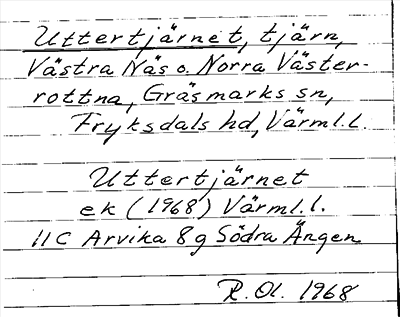 Uttertjärnet, tjärn,
Västra Näs o. Norra Väster-
rottna, Gräsmarks sn,
Fryksdals hd, Värml.l.
Uttertjärnet
ek (1968) Värml.l.
11C Arvika 8g Södra Ängen
R. Ol. 1968